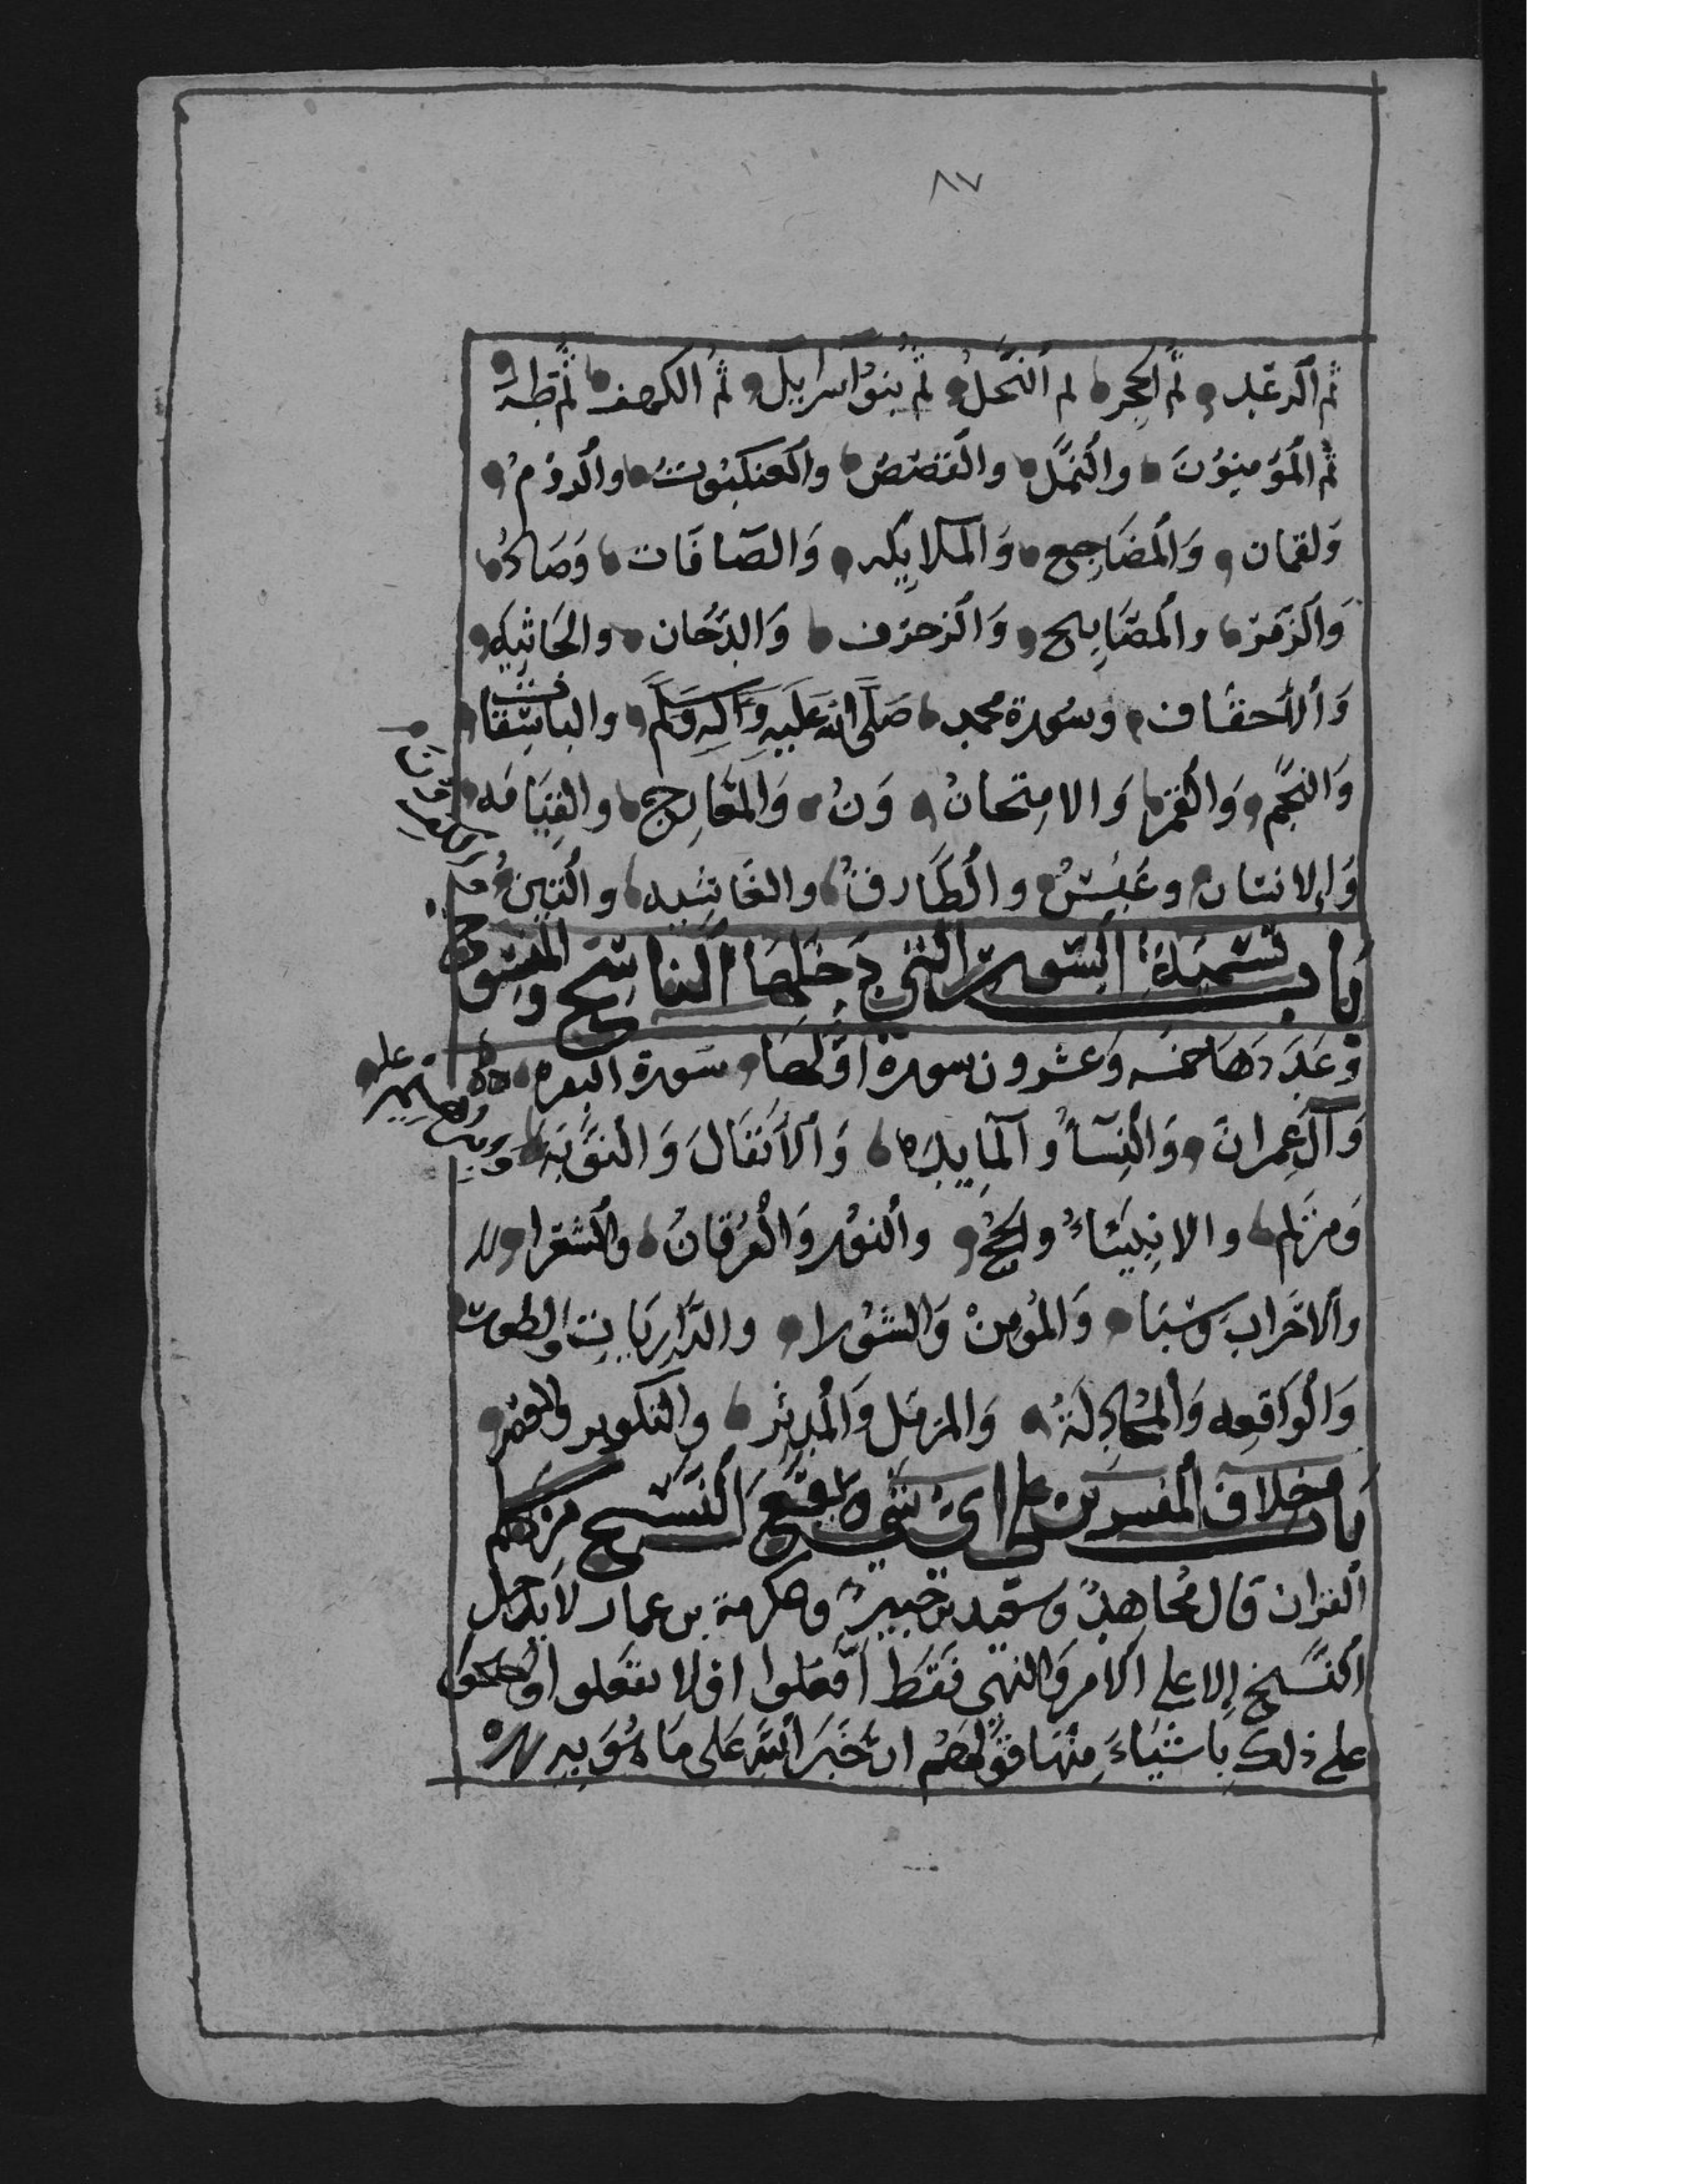 ٨٧
ثم الرعد ثم الحجر ثم النحل ثم بنو اسرايل ثم الكهف ثم طه
ثم المؤمنون والنمل والقصص والعنكبوت والروم
ولقمان والمضاجع والملايكه والصافات وصاد
والزمر والمصابيح والزخرف والدخان والجاثيه
والأحقاف وسورة محمد صلى الله عليه وآله وسلم والباسقات
والنجم والقمر والامتحان ون والمعارج والقيامه
والإنسان وعبس والطارق والغاشيه والتين
والكافرون
باب تسمية السور التي دخلها الناسخ والمنسوخ
وعددها خمسه وعشرون سورة اولها سورة البقره
وآل عمران والنسآ والمايده والأنفال والتوبة
وابرهيم عليه
ومريم والانبياء والحج والنور والفرقان والشعرا
والاحزاب وسبا والمؤمن والشورا والذاريات والطور
والواقعه والمجادلة والمزمل والمدثر والتكوير والعصر
باب اختلاف المفسرين على اي شي يقع النسخ من حكم
القران قال مجاهد وسعيد بن جبير وعكرمة بن عمار لا يدخل
النسخ إلا على الامر والنهي فقط افعلوا او لا تفعلوا واحتجوا
على ذلك باشياء منها قولهم ان خبر الله على ما هو به